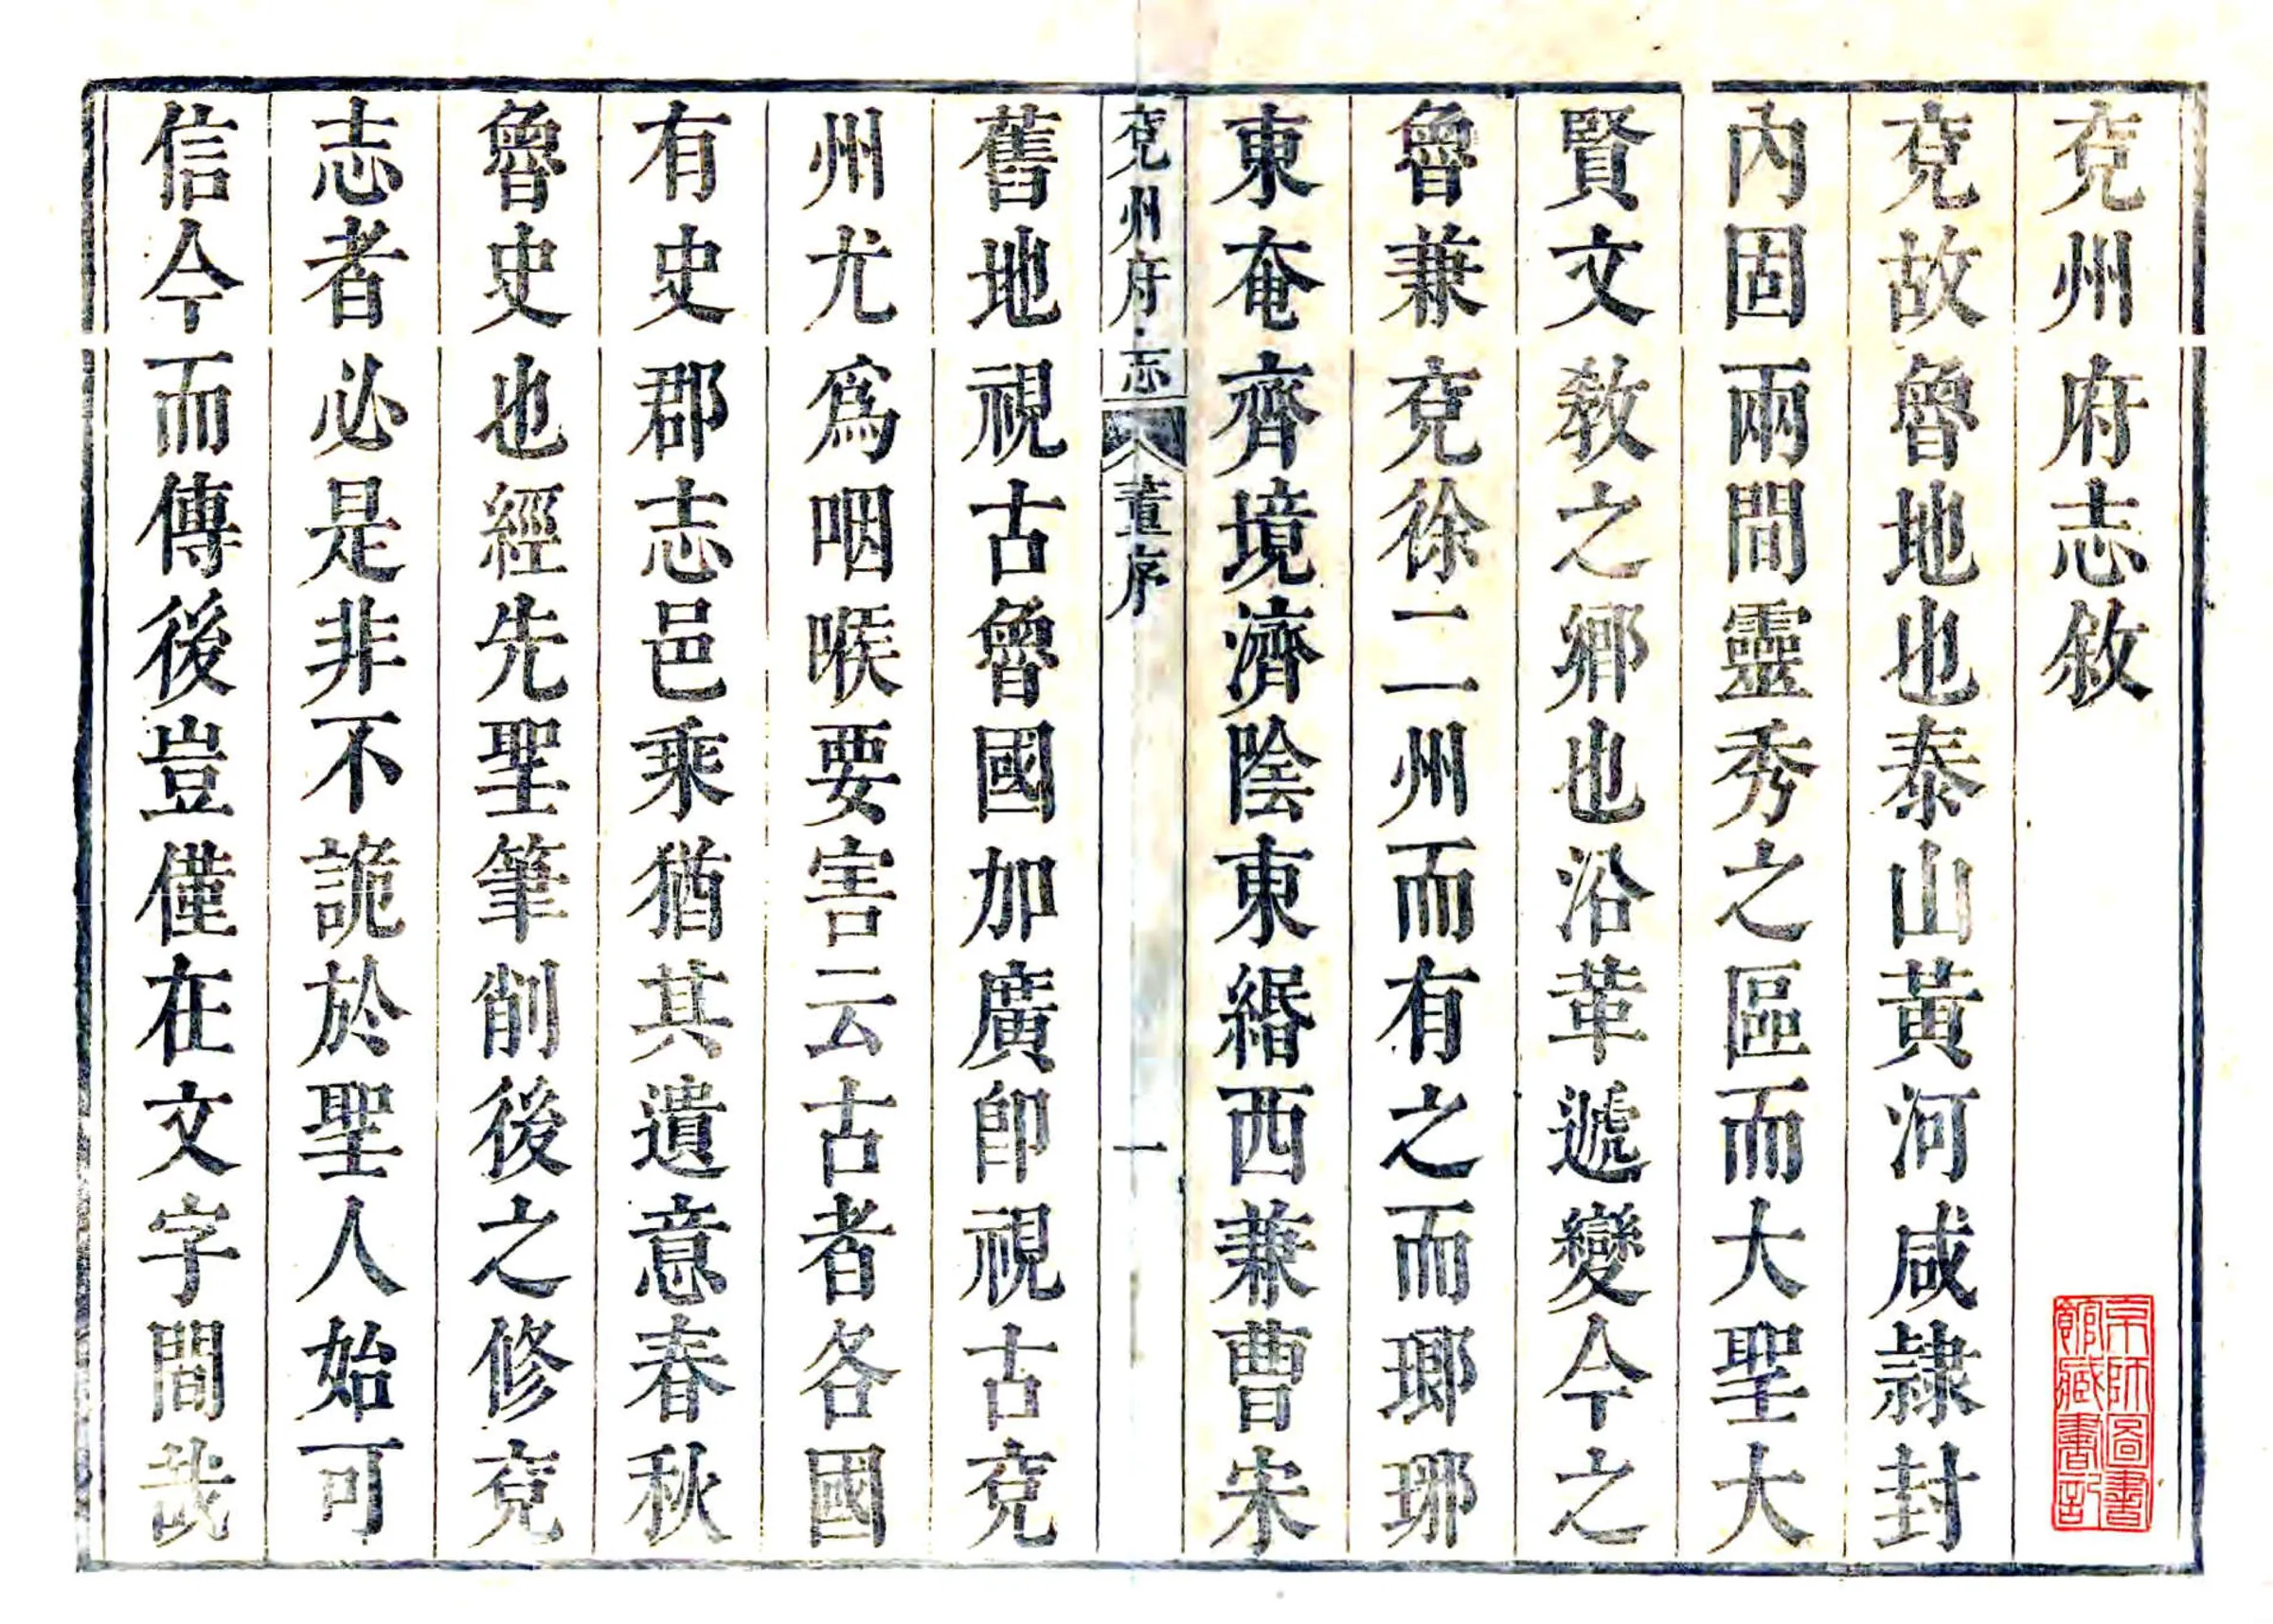 兗州府志敘
兗故魯地也泰山黃河咸隷封
內固兩間靈秀之區而大聖大
賢文敎之鄉也沿革遞變今之
魯兼兗徐二州而有之而瑯琊
東奄齊境濟陰東緡西兼曹宋
兗州府志
董序
一
舊地視古魯國加廣卽視古兗
州尤爲咽喉要害云古者各國
有史郡志邑乘猶其遺意春秋
魯史也經先聖筆削後之修兗
志者必是非不詭於聖人始可
信今而傳後豈僅在文字間哉
京師圖書
館藏書記